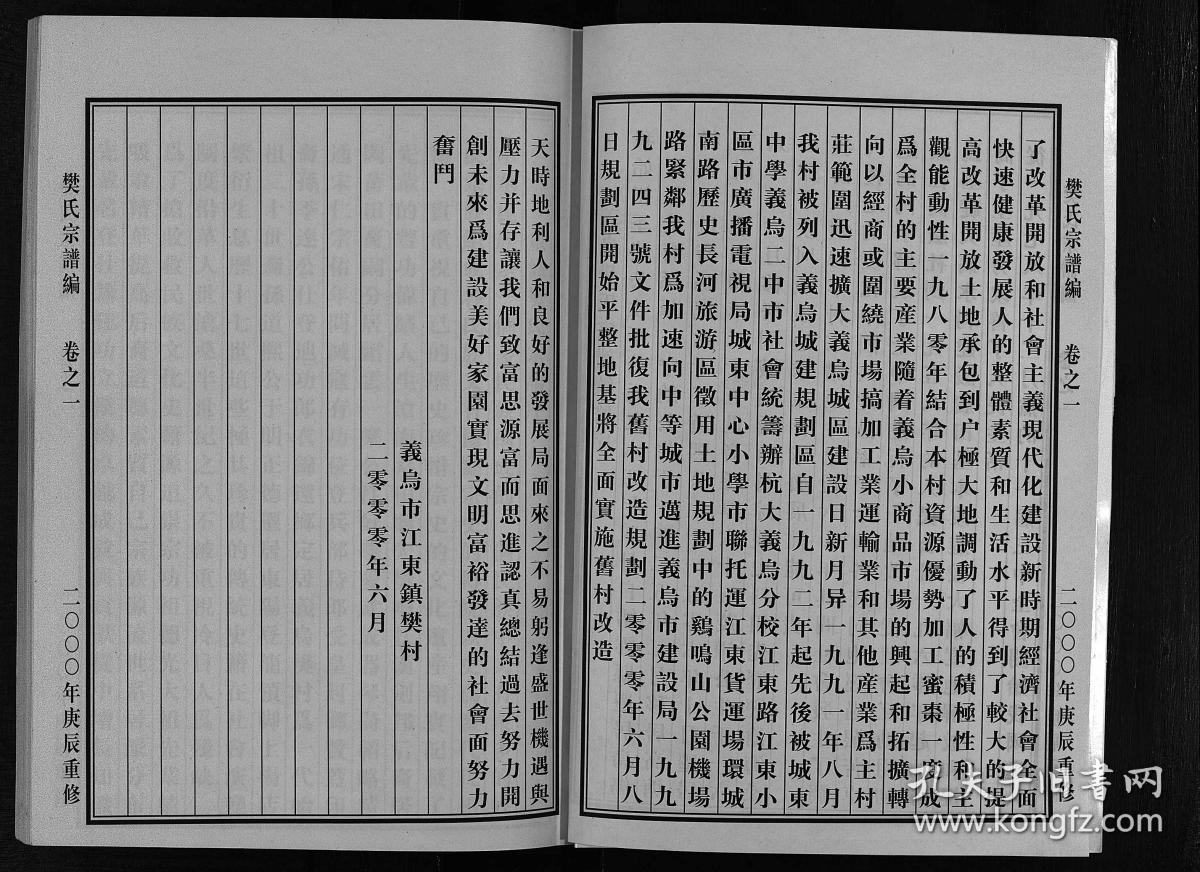 樊氏宗譜編 卷之一 二〇〇〇年庚辰重修
了改革開放和社會主義現代化建設新時期經濟社會全面
快速健康發展人的整體素質和生活水平得到了較大的提
高改革開放土地承包到户極大地調動了人的積極性和主
觀能動性一九八零年結合本村資源優勢加工蜜棗一度成
爲全村的主要産業隨着義烏小商品市場的興起和拓擴轉
向以經商或圍繞市場搞加工業運輸業和其他産業爲主村
莊範圍迅速擴大義烏城區建設日新月异一九九一年八月
我村被列入義烏城建規劃區自一九九二年起先後被城東
中學義烏二中市社會統籌辦杭大義烏分校江東路江東小
區市廣播電視局城東中心小學市聯托運江東貨運場環城
南路歷史長河旅游區徵用土地規劃中的鷄鳴山公園機場
路緊鄰我村爲加速向中等城市邁進義烏市建設局一九九
九二四三號文件批復我舊村改造規劃二零零零年六月八
日規劃區開始平整地基將全面實施舊村改造
天時地利人和良好的發展局面來之不易躬逢盛世機遇與
壓力并存讓我們致富思源富而思進認真總結過去努力開
創未來爲建設美好家園實現文明富裕發達的社會面努力
奮鬥
義烏市江東鎮樊村
二零零零年六月
樊氏宗譜編 卷之一 二〇〇〇年庚辰重修
孔夫子旧书网
www.kongfz.com